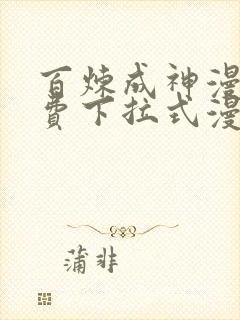 百炼成神漫
费下拉式漫
蒲非